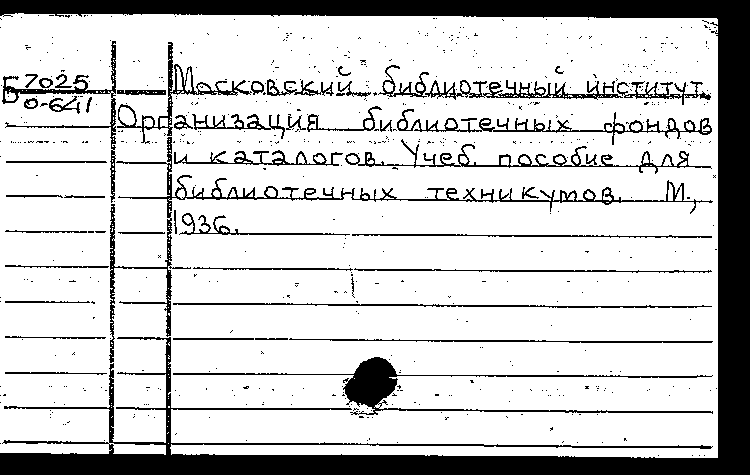 Б 7025
О-641
Московский библиотечный институт.
Организация библиотечных фондов
и каталогов. Учеб. пособие для
библиотечных техникумов. М.,
1936.